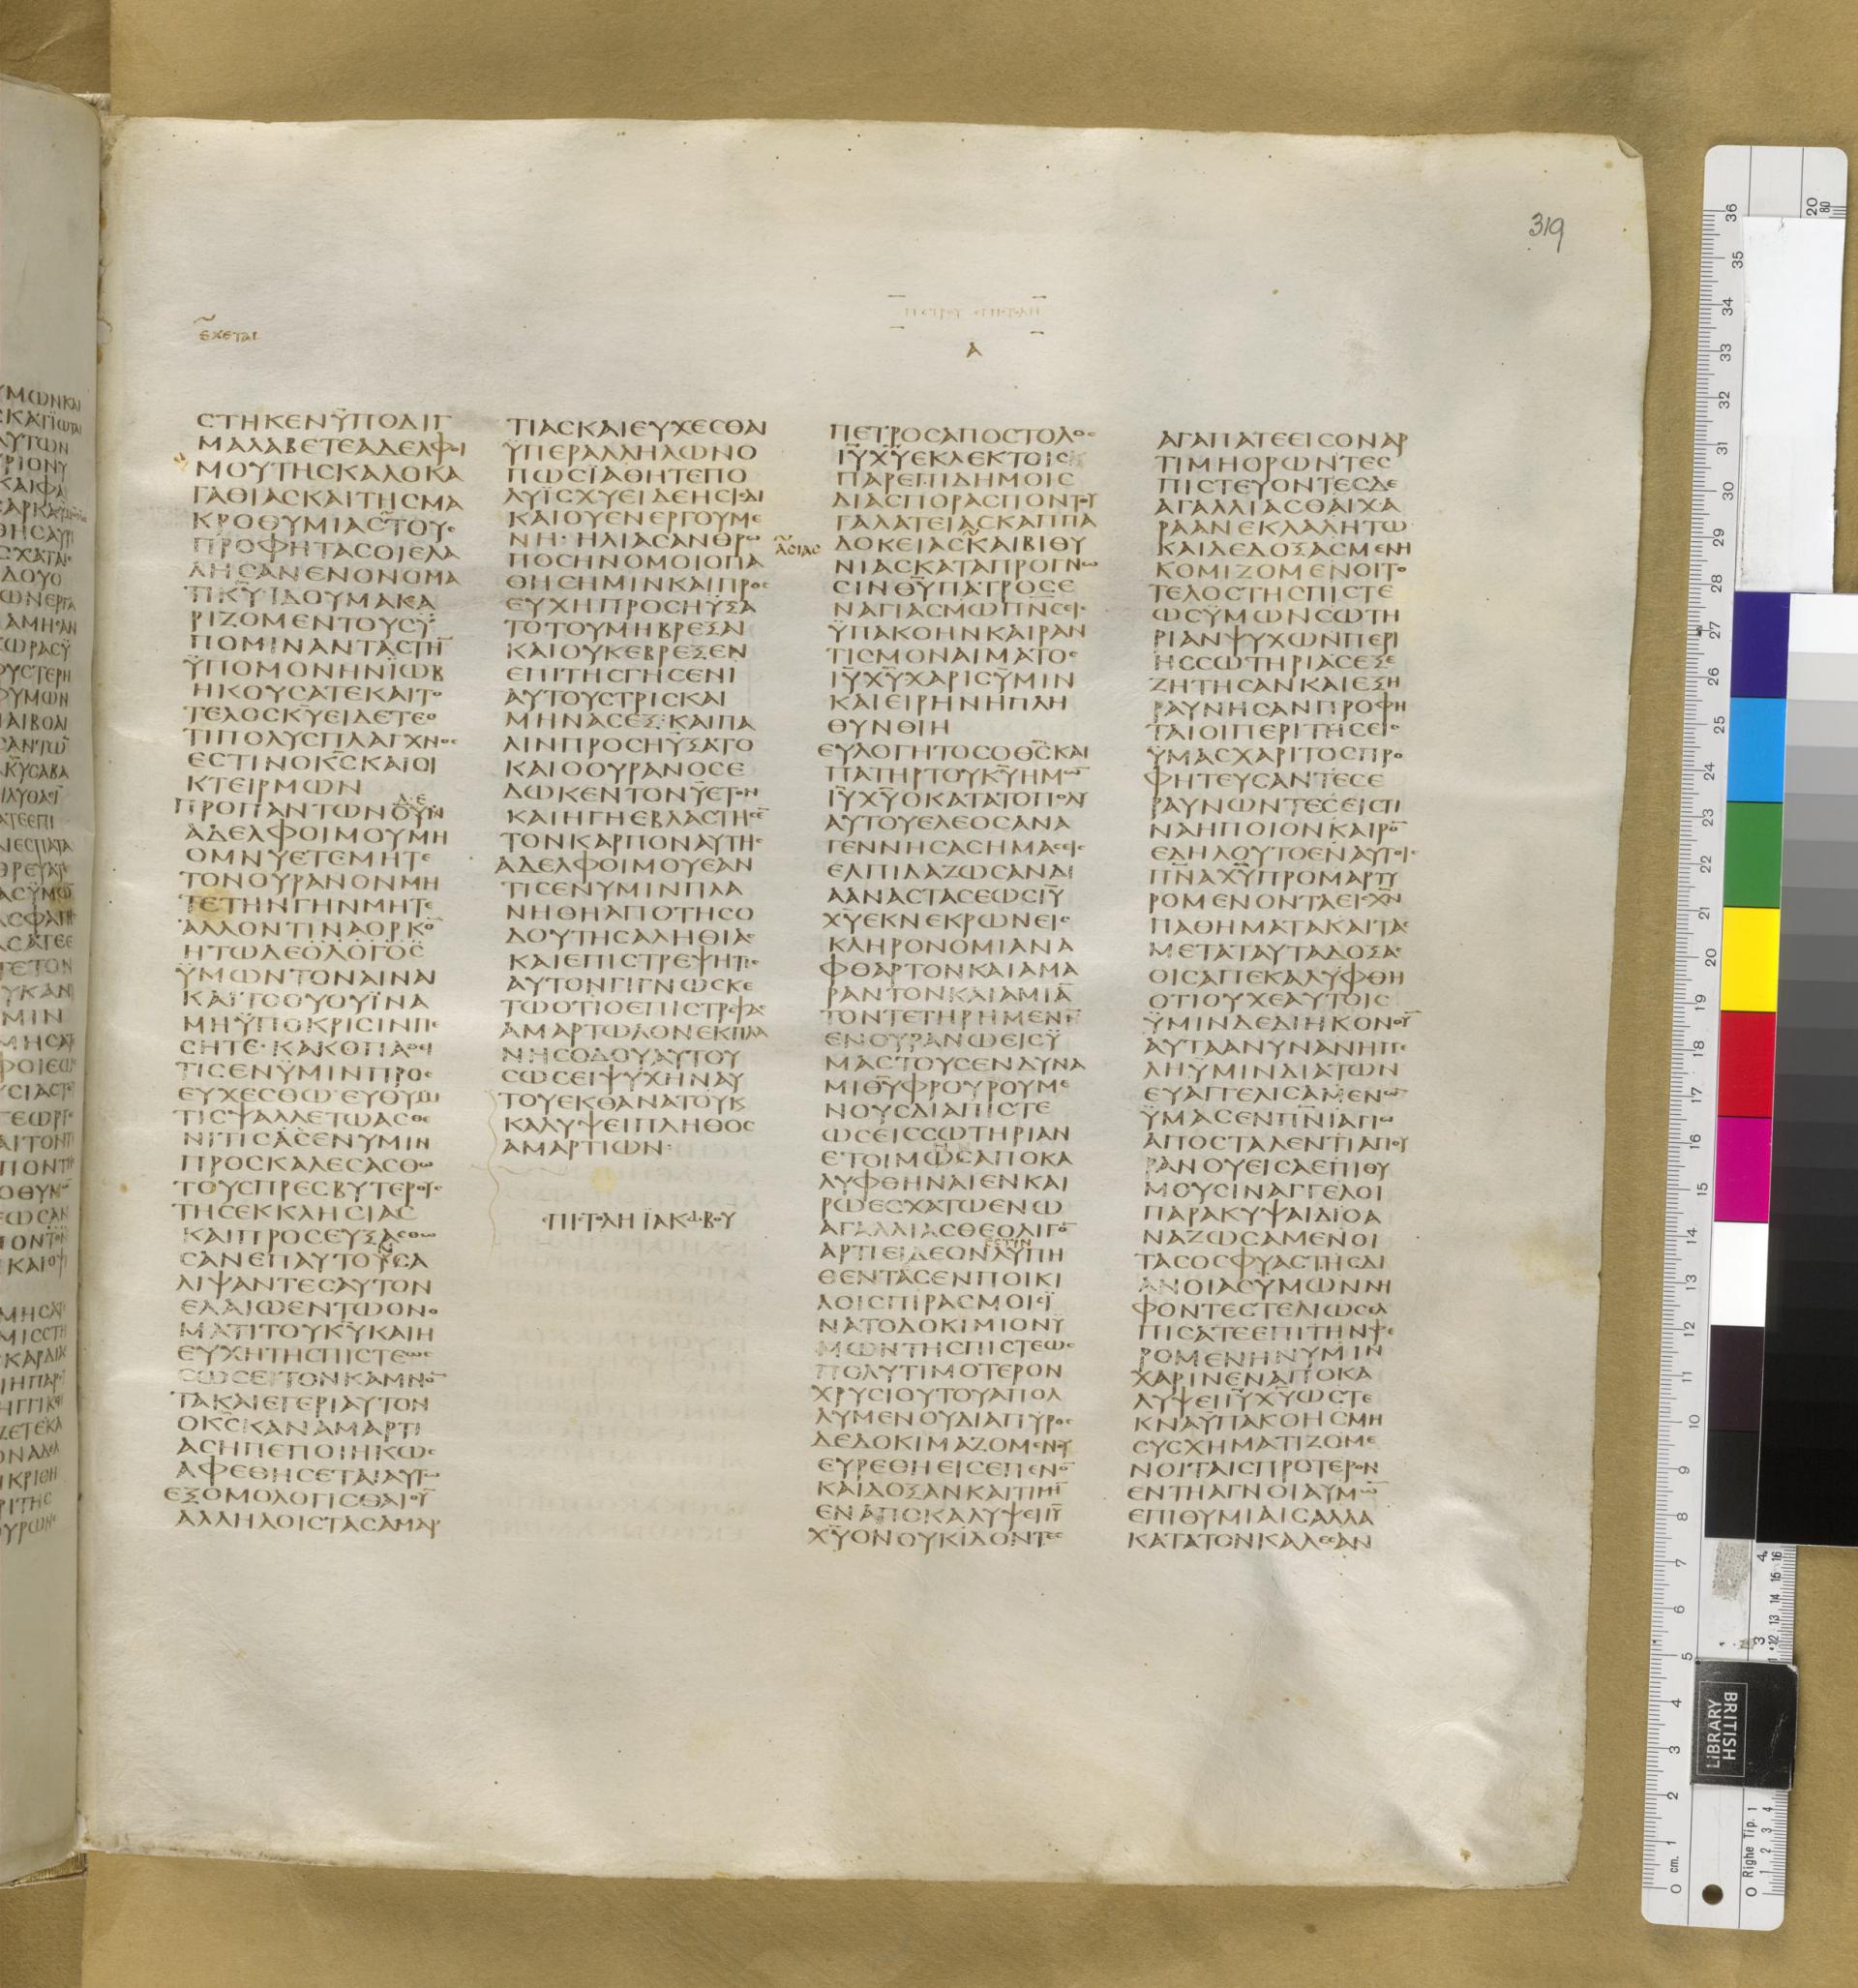 319
ΠΕΤΡΟΥ ΕΠΙΣΤΟΛΗ
Α
ΕΧΕΤΑΙ
ϹΤΗΚΕΝΫΠΟΔΙΓ
ΜΑΛΑΒΕΤΕΑΔΕΛΦΟΙ
ΜΟΥΤΗϹΚΑΛΟΚΑ
ΓΑΘΙΑϹΚΑΙΤΗϹΜΑ
ΚΡΟΘΥΜΙΑϹΤΟΥϹ
ΠΡΟΦΗΤΑϹΟΙΕΛΑ
ΛΗϹΑΝΕΝΟΝΟΜΑ
ΤΙΚΥ̅ΪΔΟΥΜΑΚΑ
ΡΙΖΟΜΕΝΤΟΥϹΫ
ΠΟΜΙΝΑΝΤΑϹΤΗ̅
ΫΠΟΜΟΝΗΝΪΩΒ
ΗΚΟΥϹΑΤΕΚΑΙΤΟ
ΤΕΛΟϹΚΥ̅ΕΙΔΕΤΕΟ
ΤΙΠΟΛΥϹΠΛΑΓΧΝΟϹ
ΕϹΤΙΝΟΚ̅Ϲ̅ΚΑΙΟΙ
ΚΤΕΙΡΜΩΝ
ΠΡΟΠΑΝΤΩΝΟΥΝ
ΔΕ
ΑΔΕΛΦΟΙΜΟΥΜΗ
ΟΜΝΥΕΤΕΜΗΤΕ
ΤΟΝΟΥΡΑΝΟΝΜΗ
ΤΕΤΗΝΓΗΝΜΗΤΕ
ΑΛΛΟΝΤΙΝΑΟΡΚΟ̅
ΗΤΩΔΕΟΛΟΓΟϹ
ΫΜΩΝΤΟΝΑΙΝΑΙ
ΚΑΙΤΟΟΥΟΥΪΝΑ
ΜΗΫΠΟΚΡΙϹΙΝΠΕ
ϹΗΤΕ·ΚΑΚΟΠΑΘΕΙ
ΤΙϹΕΝΫΜΙΝΠΡΟϹ
ΕΥΧΕϹΘΩΕΥΘΥΜΙ
ΤΙϹΨΑΛΛΕΤΩΑϹΘΕ
ΝΙΤΙϹΑϹΕΝΥΜΙΝ
ΠΡΟϹΚΑΛΕϹΑϹΘΩ
ΤΟΥϹΠΡΕϹΒΥΤΕΡΟΥϹ
ΤΗϹΕΚΚΛΗϹΙΑϹ
ΚΑΙΠΡΟϹΕΥΞΑϹΘΩ
ϹΑΝΕΠΑΥΤΟΥϹΑ
ΛΙΨΑΝΤΕϹΑΥΤΟΝ
ΕΛΑΙΩΕΝΤΩΟΝΟ
ΜΑΤΙΤΟΥΚΥ̅ΚΑΙΗ
ΕΥΧΗΤΗϹΠΙϹΤΕΩϹ
ϹΩϹΕΙΤΟΝΚΑΜΝΟ̅
ΤΑΚΑΙΕΓΕΡΙΑΥΤΟΝ
ΟΚ̅Ϲ̅ΚΑΝΑΜΑΡΤΙ
ΑϹΗΠΕΠΟΙΗΚΩϹ
ΑΦΕΘΗϹΕΤΑΙΑΥΤΩ
ΕΞΟΜΟΛΟΓΙϹΘΑΙΟΥ̅
ΑΛΛΗΛΟΙϹΤΑϹΑΜΑΡ
ΤΙΑϹΚΑΙΕΥΧΕϹΘΑΙ
ΫΠΕΡΑΛΛΗΛΩΝΟ
ΠΩϹΪΑΘΗΤΕΠΟ
ΛΥΪϹΧΥΕΙΔΕΗϹΙϹΔΙ
ΚΑΙΟΥΕΝΕΡΓΟΥΜΕ
ΝΗ·ΗΛΙΑϹΑΝΘΡΩ
ΠΟϹΗΝΟΜΟΙΟΠΑ
ΘΗϹΗΜΙΝΚΑΙΠΡΟϹ
ΕΥΧΗΠΡΟϹΗΫΞΑ
ΤΟΤΟΥΜΗΒΡΕΞΑΙ
ΚΑΙΟΥΚΕΒΡΕΞΕΝ
ΕΠΙΤΗϹΓΗϹΕΝΙ
ΑΥΤΟΥϹΤΡΙϹΚΑΙ
ΜΗΝΑϹΕΞ:ΚΑΙΠΑ
ΛΙΝΠΡΟϹΗΫΞΑΤΟ
ΚΑΙΟΟΥΡΑΝΟϹΕ
ΔΩΚΕΝΤΟΝΫΕΤΟΝ
ΚΑΙΗΓΗΕΒΛΑϹΤΗϹΕ̅
ΤΟΝΚΑΡΠΟΝΑΥΤΗϹ
ΑΔΕΛΦΟΙΜΟΥΕΑΝ
ΤΙϹΕΝΥΜΙΝΠΛΑ
ΝΗΘΗΑΠΟΤΗϹΟ
ΔΟΥΤΗϹΑΛΗΘΙΑϹ
ΚΑΙΕΠΙϹΤΡΕΨΗΤΙϹ
ΑΥΤΟΝΓΙΓΝΩϹΚΕ
ΤΩΟΤΙΟΕΠΙϹΤΡΕΨΑϹ
ΑΜΑΡΤΩΛΟΝΕΚΠΛΑ
ΝΗϹΟΔΟΥΑΥΤΟΥ
ϹΩϹΕΙΨΥΧΗΝΑΥ
ΤΟΥΕΚΘΑΝΑΤΟΥΚ
ΚΑΛΥΨΕΙΠΛΗΘΟϹ
ΑΜΑΡΤΙΩΝ·
ΕΠΙϹΤΟΛΗΪΑΚΩΒΟΥ
ΠΕΤΡΟϹΑΠΟϹΤΟΛΟϹ
ΙΥ̅ΧΥ̅ΕΚΛΕΚΤΟΙϹ
ΠΑΡΕΠΙΔΗΜΟΙϹ
ΔΙΑϹΠΟΡΑϹΠΟΝΤΟΥ
ΓΑΛΑΤΕΙΑϹΚΑΠΠΑ
ΑϹΙΑϹ
ΔΟΚΕΙΑϹΚΑΙΒΙΘΥ
ΝΙΑϹΚΑΤΑΠΡΟΓΝΩ
ϹΙΝΘΥ̅ΠΑΤΡΟϹΕ
ΝΑΓΙΑϹΜΩΠΝ̅Ϲ̅ΕΙϹ
ΫΠΑΚΟΗΝΚΑΙΡΑΝ
ΤΙϹΜΟΝΑΙΜΑΤΟϹ
ΙΥ̅ΧΥ̅ΧΑΡΙϹΫΜΙΝ
ΚΑΙΕΙΡΗΝΗΠΛΗ
ΘΥΝΘΙΗ
ΕΥΛΟΓΗΤΟϹΟΘ̅Ϲ̅ΚΑΙ
ΠΑΤΗΡΤΟΥΚΥ̅ΗΜΩ̅
ΙΥ̅ΧΥ̅ΟΚΑΤΑΤΟΠΟΛΥ
ΑΥΤΟΥΕΛΕΟϹΑΝΑ
ΓΕΝΝΗϹΑϹΗΜΑϹΕΙϹ
ΕΛΠΙΔΑΖΩϹΑΝΔΙ
ΑΑΝΑϹΤΑϹΕΩϹΙΥ̅
ΧΥ̅ΕΚΝΕΚΡΩΝΕΙϹ
ΚΛΗΡΟΝΟΜΙΑΝΑ
ΦΘΑΡΤΟΝΚΑΙΑΜΑ
ΡΑΝΤΟΝΚΑΙΑΜΙΑ̅
ΤΟΝΤΕΤΗΡΗΜΕΝΗ̅
ΕΝΟΥΡΑΝΩΕΙϹΫ
ΜΑϹΤΟΥϹΕΝΔΥΝΑ
ΜΙΘΥ̅ΦΡΟΥΡΟΥΜΕ
ΝΟΥϹΔΙΑΠΙϹΤΕ
ΩϹΕΙϹϹΩΤΗΡΙΑΝ
ΕΤΟΙΜΩϹΑΠΟΚΑ
ΛΥΦΘΗΝΑΙΕΝΚΑΙ
ΡΩΕϹΧΑΤΩΕΝΩ
ΑΓΑΛΛΙΑϹΘΕΟΛΙΓΟ̅
ΕϹΤΙΝ
ΑΡΤΙΕΙΔΕΟΝΛΥΠΗ
ΘΕΝΤΑϹΕΝΠΟΙΚΙ
ΛΟΙϹΠΙΡΑϹΜΟΙϹΪ
ΝΑΤΟΔΟΚΙΜΙΟΝΥ
ΜΩΝΤΗϹΠΙϹΤΕΩϹ
ΠΟΛΥΤΙΜΟΤΕΡΟΝ
ΧΡΥϹΙΟΥΤΟΥΑΠΟΛ
ΛΥΜΕΝΟΥΔΙΑΠΥΡΟϹ
ΔΕΔΟΚΙΜΑΖΟΜΕΝΟΥ
ΕΥΡΕΘΗΕΙϹΕΠΕΝΟ̅
ΚΑΙΔΟΞΑΝΚΑΙΤΙΜΗ̅
ΕΝΑΠΟΚΑΛΥΨΕΙΙΥ̅
ΧΥ̅ΟΝΟΥΚΙΔΟΝΤΕϹ
ΑΓΑΠΑΤΕΕΙϹΟΝΑΡ
ΤΙΜΗΟΡΩΝΤΕϹ
ΠΙϹΤΕΥΟΝΤΕϹΔΕ
ΑΓΑΛΛΙΑϹΘΑΙΧΑ
ΡΑΑΝΕΚΛΑΛΗΤΩ
ΚΑΙΔΕΔΟΞΑϹΜΕΝΗ
ΚΟΜΙΖΟΜΕΝΟΙΤΟ
ΤΕΛΟϹΤΗϹΠΙϹΤΕ
ΩϹΫΜΩΝϹΩΤΗ
ΡΙΑΝΨΥΧΩΝΠΕΡΙ
ΗϹϹΩΤΗΡΙΑϹΕΞΕ
ΖΗΤΗϹΑΝΚΑΙΕΞΗ
ΡΑΥΝΗϹΑΝΠΡΟΦΗ
ΤΑΙΟΙΠΕΡΙΤΗϹΕΙϹ
ΫΜΑϹΧΑΡΙΤΟϹΠΡΟ
ΦΗΤΕΥϹΑΝΤΕϹΕ
ΡΑΥΝΩΝΤΕϹΕΙϹΤΙ
ΝΑΗΠΟΙΟΝΚΑΙΡΟ̅
ΕΔΗΛΟΥΤΟΕΝΑΥΤΟΙϹ
ΠΝ̅ΑΧΥ̅ΠΡΟΜΑΡΤΥ
ΡΟΜΕΝΟΝΤΑΕΙϹΧΝ̅
ΠΑΘΗΜΑΤΑΚΑΙΤΑϹ
ΜΕΤΑΤΑΥΤΑΔΟΞΑϹ
ΟΙϹΑΠΕΚΑΛΥΦΘΗ
ΟΤΙΟΥΧΕΑΥΤΟΙϹ
ΫΜΙΝΔΕΔΙΗΚΟΝΟΥ̅
ΑΥΤΑΑΝΥΝΑΝΗΓΓΕ
ΛΗΫΜΙΝΔΙΑΤΩΝ
ΕΥΑΓΓΕΛΙϹΑΜΕΝΩ̅
ΫΜΑϹΕΝΠΝ̅ΙΑΓΙΩ
ΑΠΟϹΤΑΛΕΝΤΙΑΠΟΥ
ΡΑΝΟΥΕΙϹΑΕΠΙΘΥ
ΜΟΥϹΙΝΑΓΓΕΛΟΙ
ΠΑΡΑΚΥΨΑΙΔΙΟΑ
ΝΑΖΩϹΑΜΕΝΟΙ
ΤΑϹΟϹΦΥΑϹΤΗϹΔΙ
ΑΝΟΙΑϹΫΜΩΝΝΗ
ΦΟΝΤΕϹΤΕΛΙΩϹΕΛ
ΠΙϹΑΤΕΕΠΙΤΗΝΦΕ
ΡΟΜΕΝΗΝΥΜΙΝ
ΧΑΡΙΝΕΝΑΠΟΚΑ
ΛΥΨΕΙΙΥ̅ΧΥ̅ΩϹΤΕ
ΚΝΑΫΠΑΚΟΗϹΜΗ
ϹΥϹΧΗΜΑΤΙΖΟΜΕ
ΝΟΙΤΑΙϹΠΡΟΤΕΡΟΝ
ΕΝΤΗΑΓΝΟΙΑΥΜΩ̅
ΕΠΙΘΥΜΙΑΙϹΑΛΛΑ
ΚΑΤΑΤΟΝΚΑΛΕϹΑΝ
BRITISH
LIBRARY